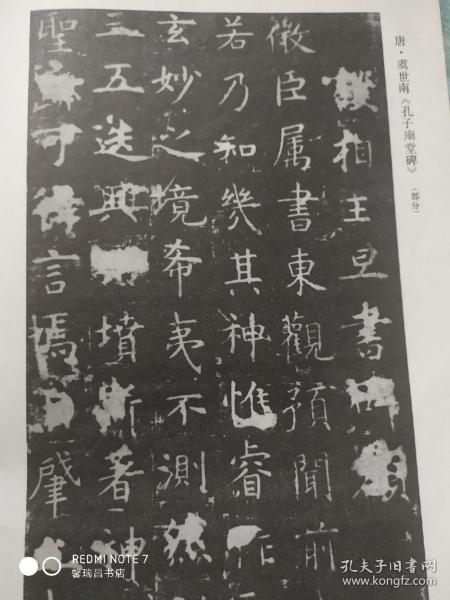 唐·虞世南《孔子廟堂碑》（部分）
相王旦書碑額
微臣属書東觀預聞前
若乃知幾其神惟睿作
玄妙之境希夷不測然
三五迭興墳斯著神
聖可得言焉肇
REDMI NOTE 7
馨瑞昌书店
孔夫子旧书网
www.kongfz.com